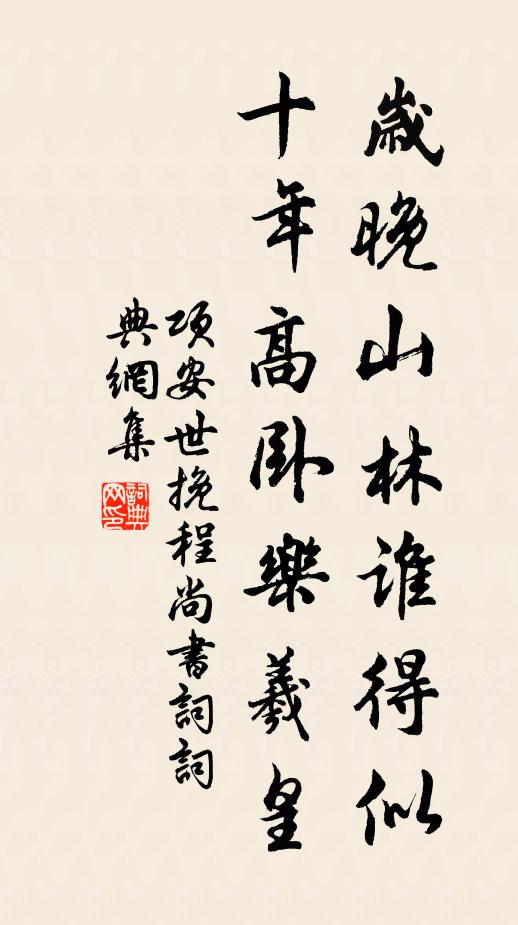 歲晚山林誰得似
十年高卧樂羲皇
項安世挽程尚書詞詞
典網集
詞典
网印